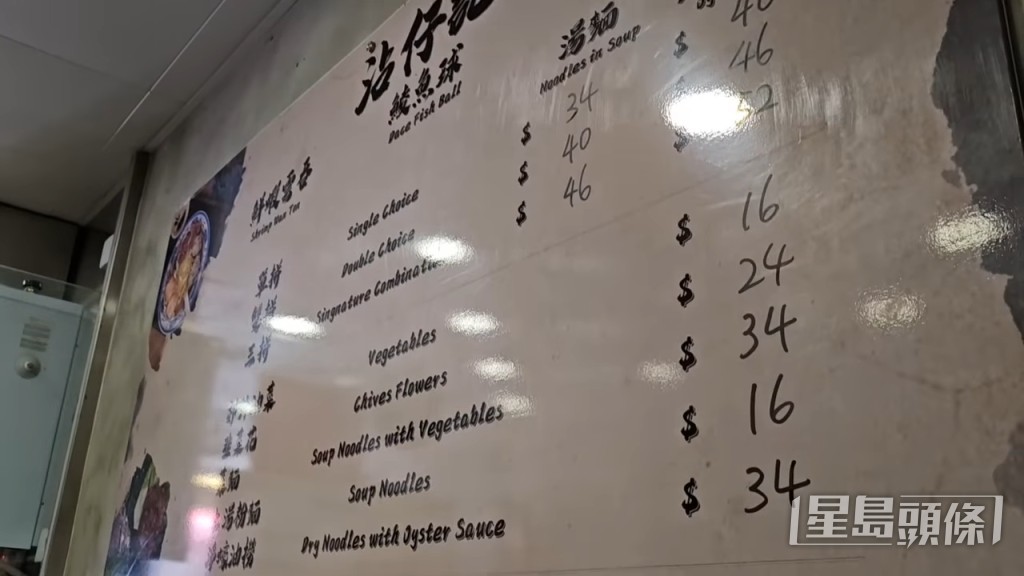 沾仔記
鯪魚球
Dace Fish Ball
湯麵
Noodles in Soup
鮮蝦雲吞
Shrimp Wan Tun
$ 34 $ 40
$ 40 $ 46
$ 46 $ 52
單拼 Single Choice
雙拼 Double Choice
三拼 Singnature Combination
油菜 Vegetables $ 16
韮菜花 Chives Flowers $ 24
菜麵 Soup Noodles with Vegetables $ 34
湯粉麵 Soup Noodles $ 16
蠔油撈 Dry Noodles with Oyster Sauce $ 34
星島頭條